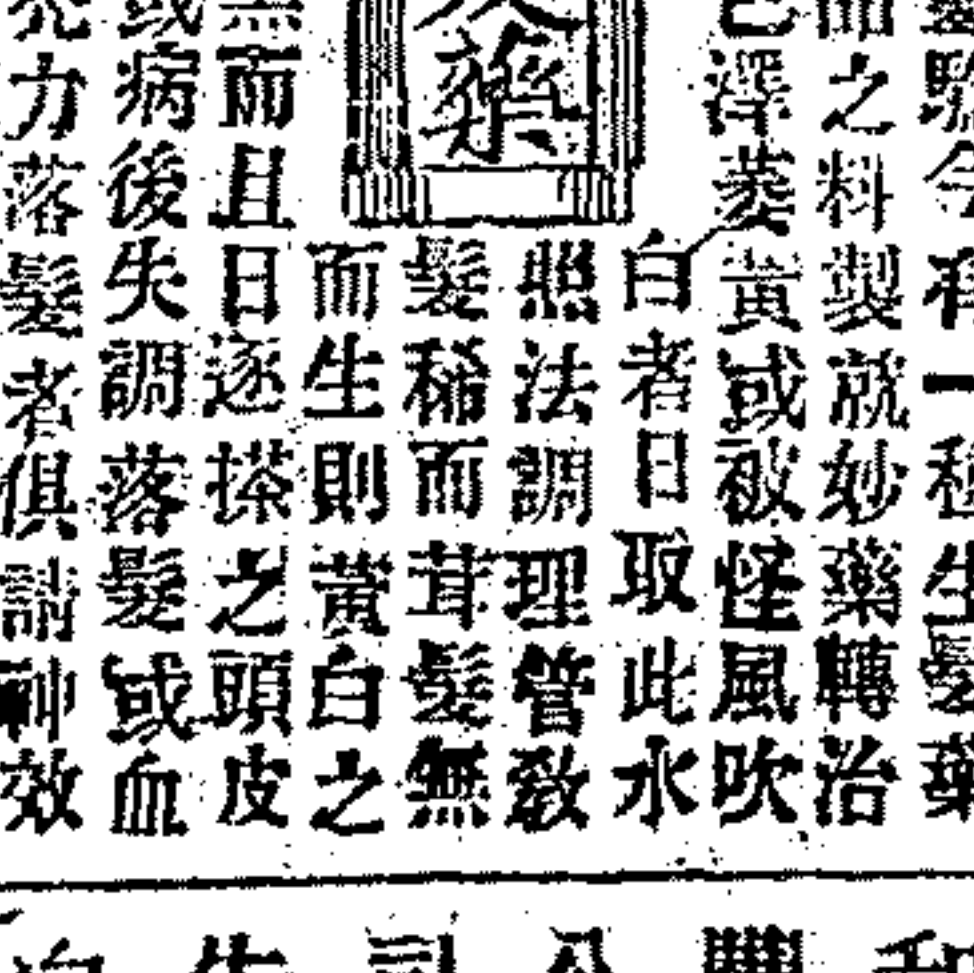 驗今有一種生髮藥
之料製就妙藥轉治
已澤菱黃或被怪風吹
白者日取此水
照法調理管教
髮稀而茸髮無
而生則黃白之
藥
而且日逐搽之頭皮
或病後失調落髮或血
力落髮者俱請神效